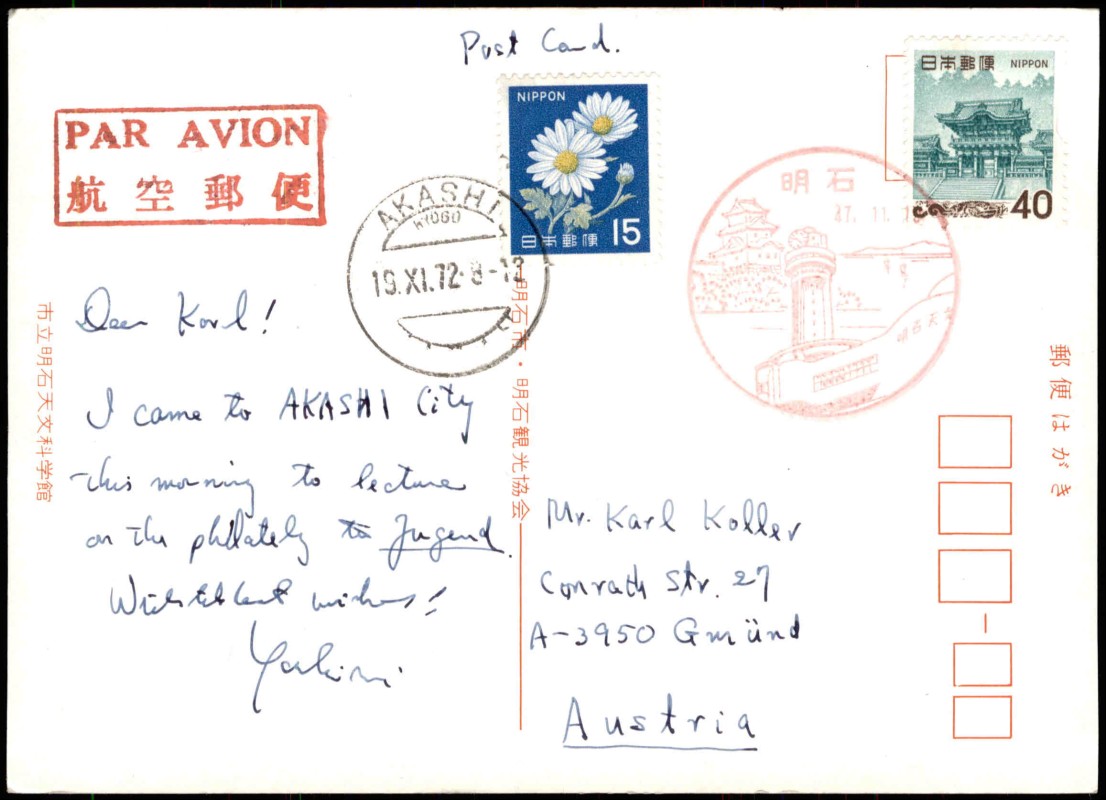 Post Card.
PAR AVION
航空郵便
NIPPON
日本郵便 15
日本郵便 NIPPON
40
AKASHI
HYOGO
19.XI.72.8-12
明石
47.11.
明石天
市立明石天文科学館
明石市・明石観光協会
郵便はがき
Dear Karl!
I came to AKASHI City
this morning to lecture
on the philately to Jugend.
With best wishes!!
Mr. Karl Koller
Conrath Str. 27
A-3950 Gmünd
Austria